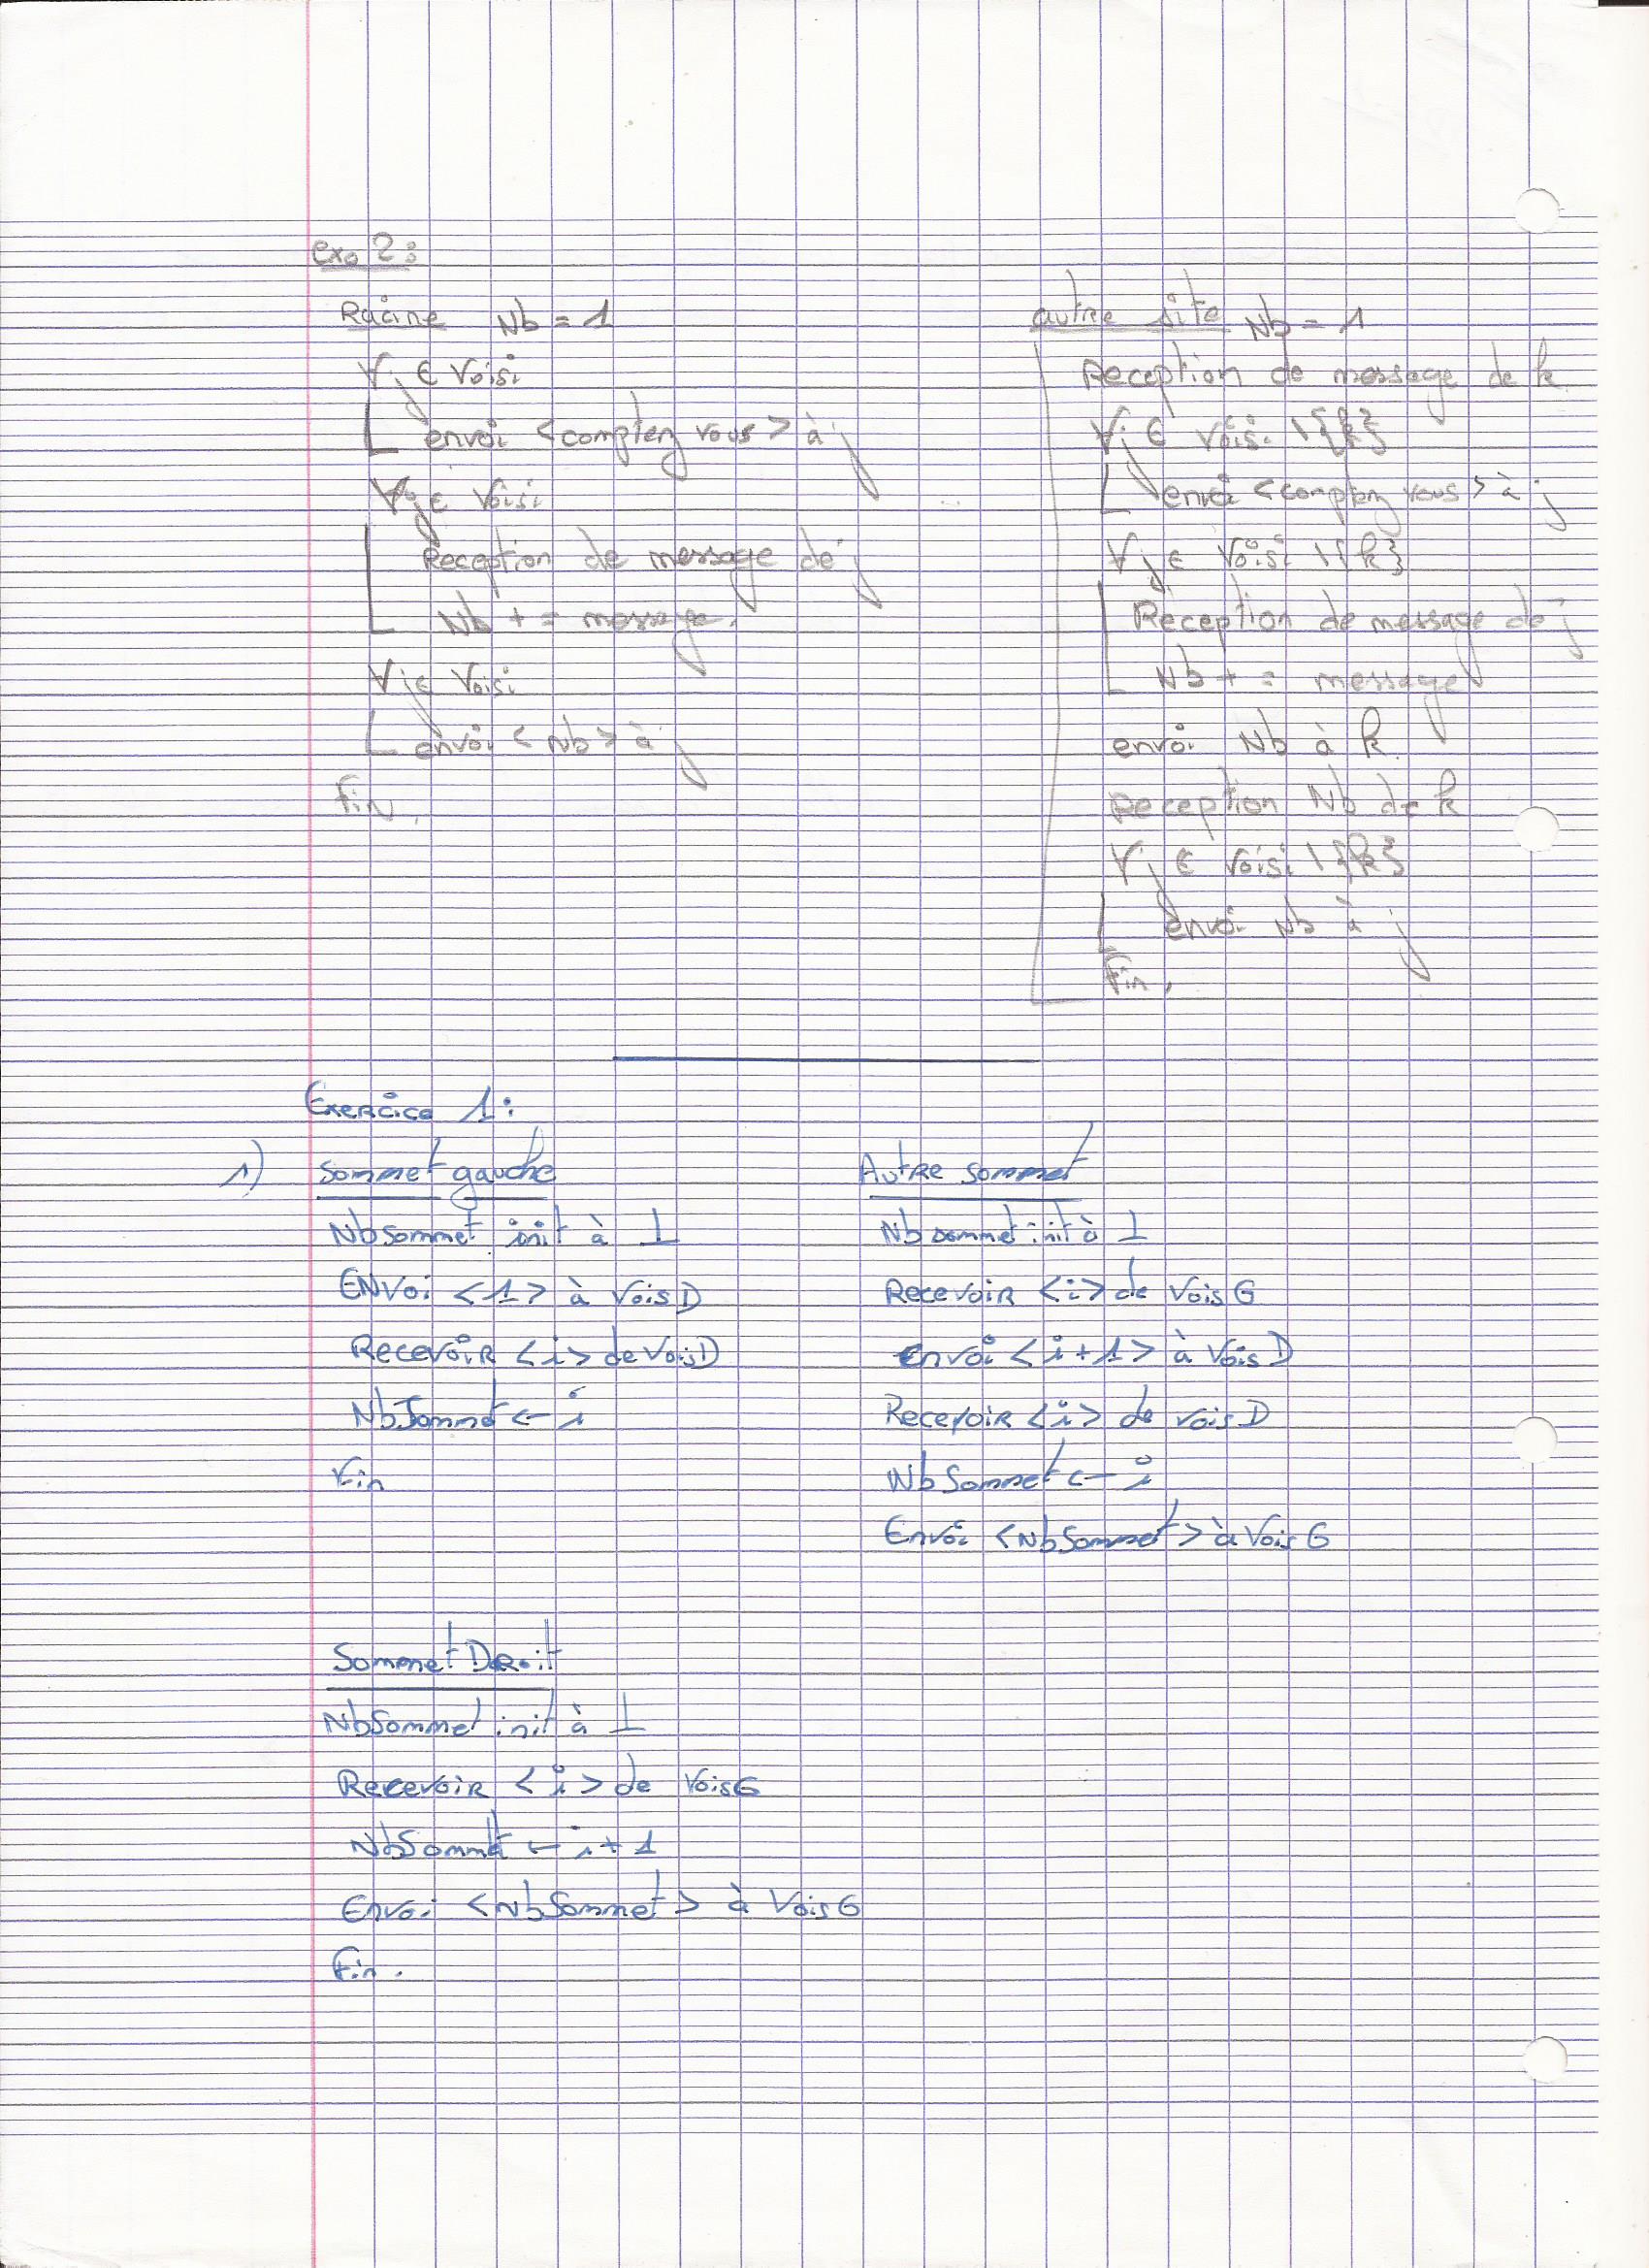 exo 2 :
Racine Nb = 1
∀j ∈ Voisi
envoi <comptez vous> à j
∀j ∈ Voisi
Reception de message de j
Nb + = message.
∀j ∈ Voisi
envoi < Nb > à j
Fin.
autre site Nb = 1
Reception de message de k
∀j ∈ Voisi \{k}
envoi <comptez vous> à j
∀j ∈ Voisi \{k}
Reception de message de j
Nb + = message
envoi Nb à k
Reception Nb de k
∀j ∈ Voisi \{k}
envoi Nb à j
Fin.
Exercice 1 :
1) Sommet gauche
Nbsommet init à ⊥
ENVoi <1> à VoisD
Recevoir <i> de VoisD
NbSommet ← i
Fin
Autre sommet
Nbsommet init à ⊥
Recevoir <i> de VoisG
Envoi <i+1> à VoisD
Recevoir <i> de VoisD
NbSommet ← i
Envoi <NbSommet> à VoisG
Sommet Droit
NbSommet init à ⊥
Recevoir <i> de VoisG
NbSommet ← i+1
Envoi <NbSommet> à VoisG
Fin.